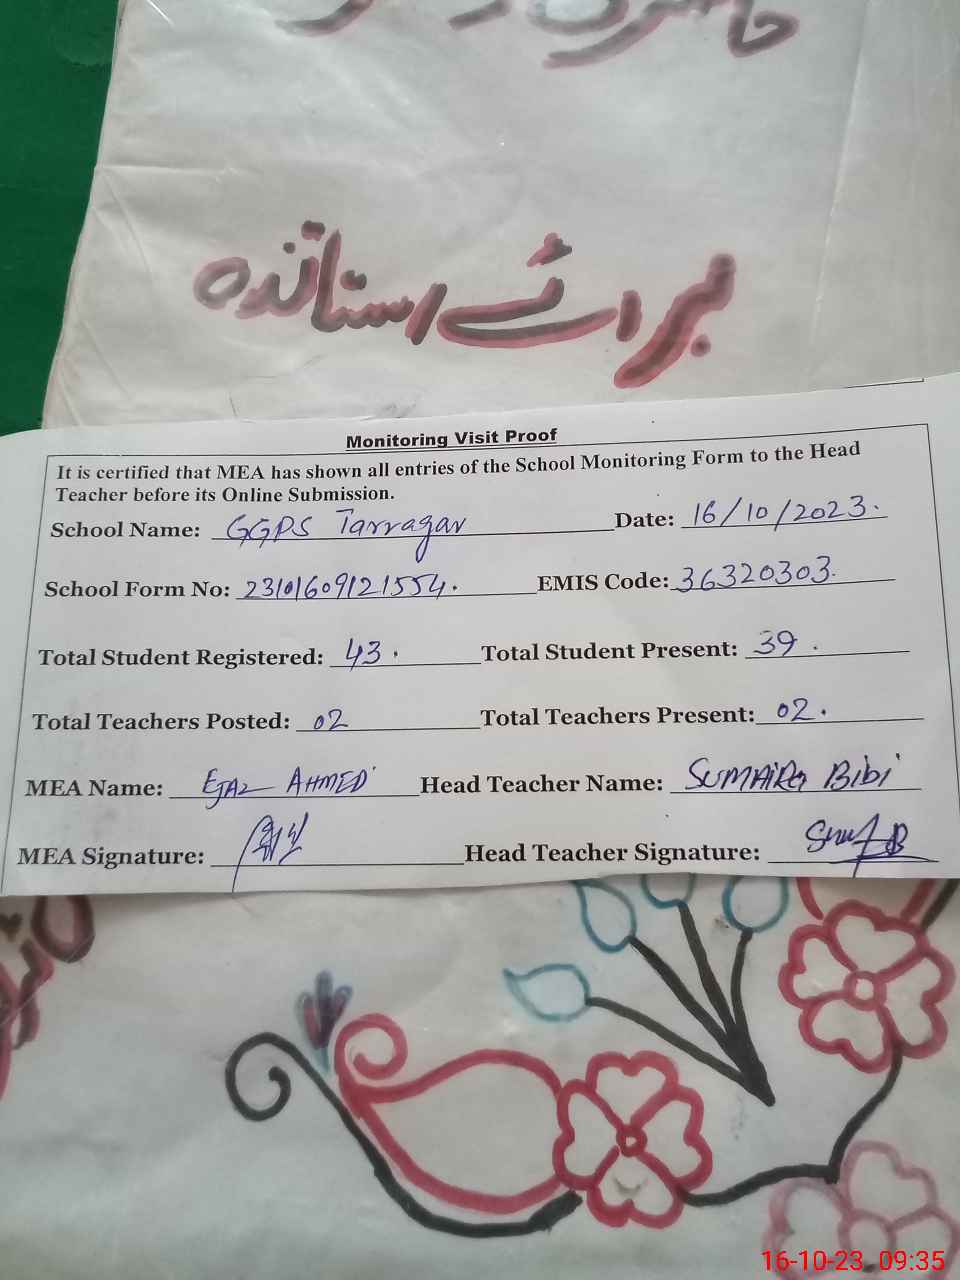 برائے استاتذہ
Monitoring Visit Proof
It is certified that MEA has shown all entries of the School Monitoring Form to the Head
Teacher before its Online Submission.
School Name: GGPS Tarragar Date: 16/10/2023.
School Form No: 23101609121554. EMIS Code: 36320303.
Total Student Registered: 43. Total Student Present: 39.
Total Teachers Posted: 02 Total Teachers Present: 02.
MEA Name: EJAZ AHMED Head Teacher Name: SUMAIRA BiBi
MEA Signature: Head Teacher Signature:
16-10-23 09:35